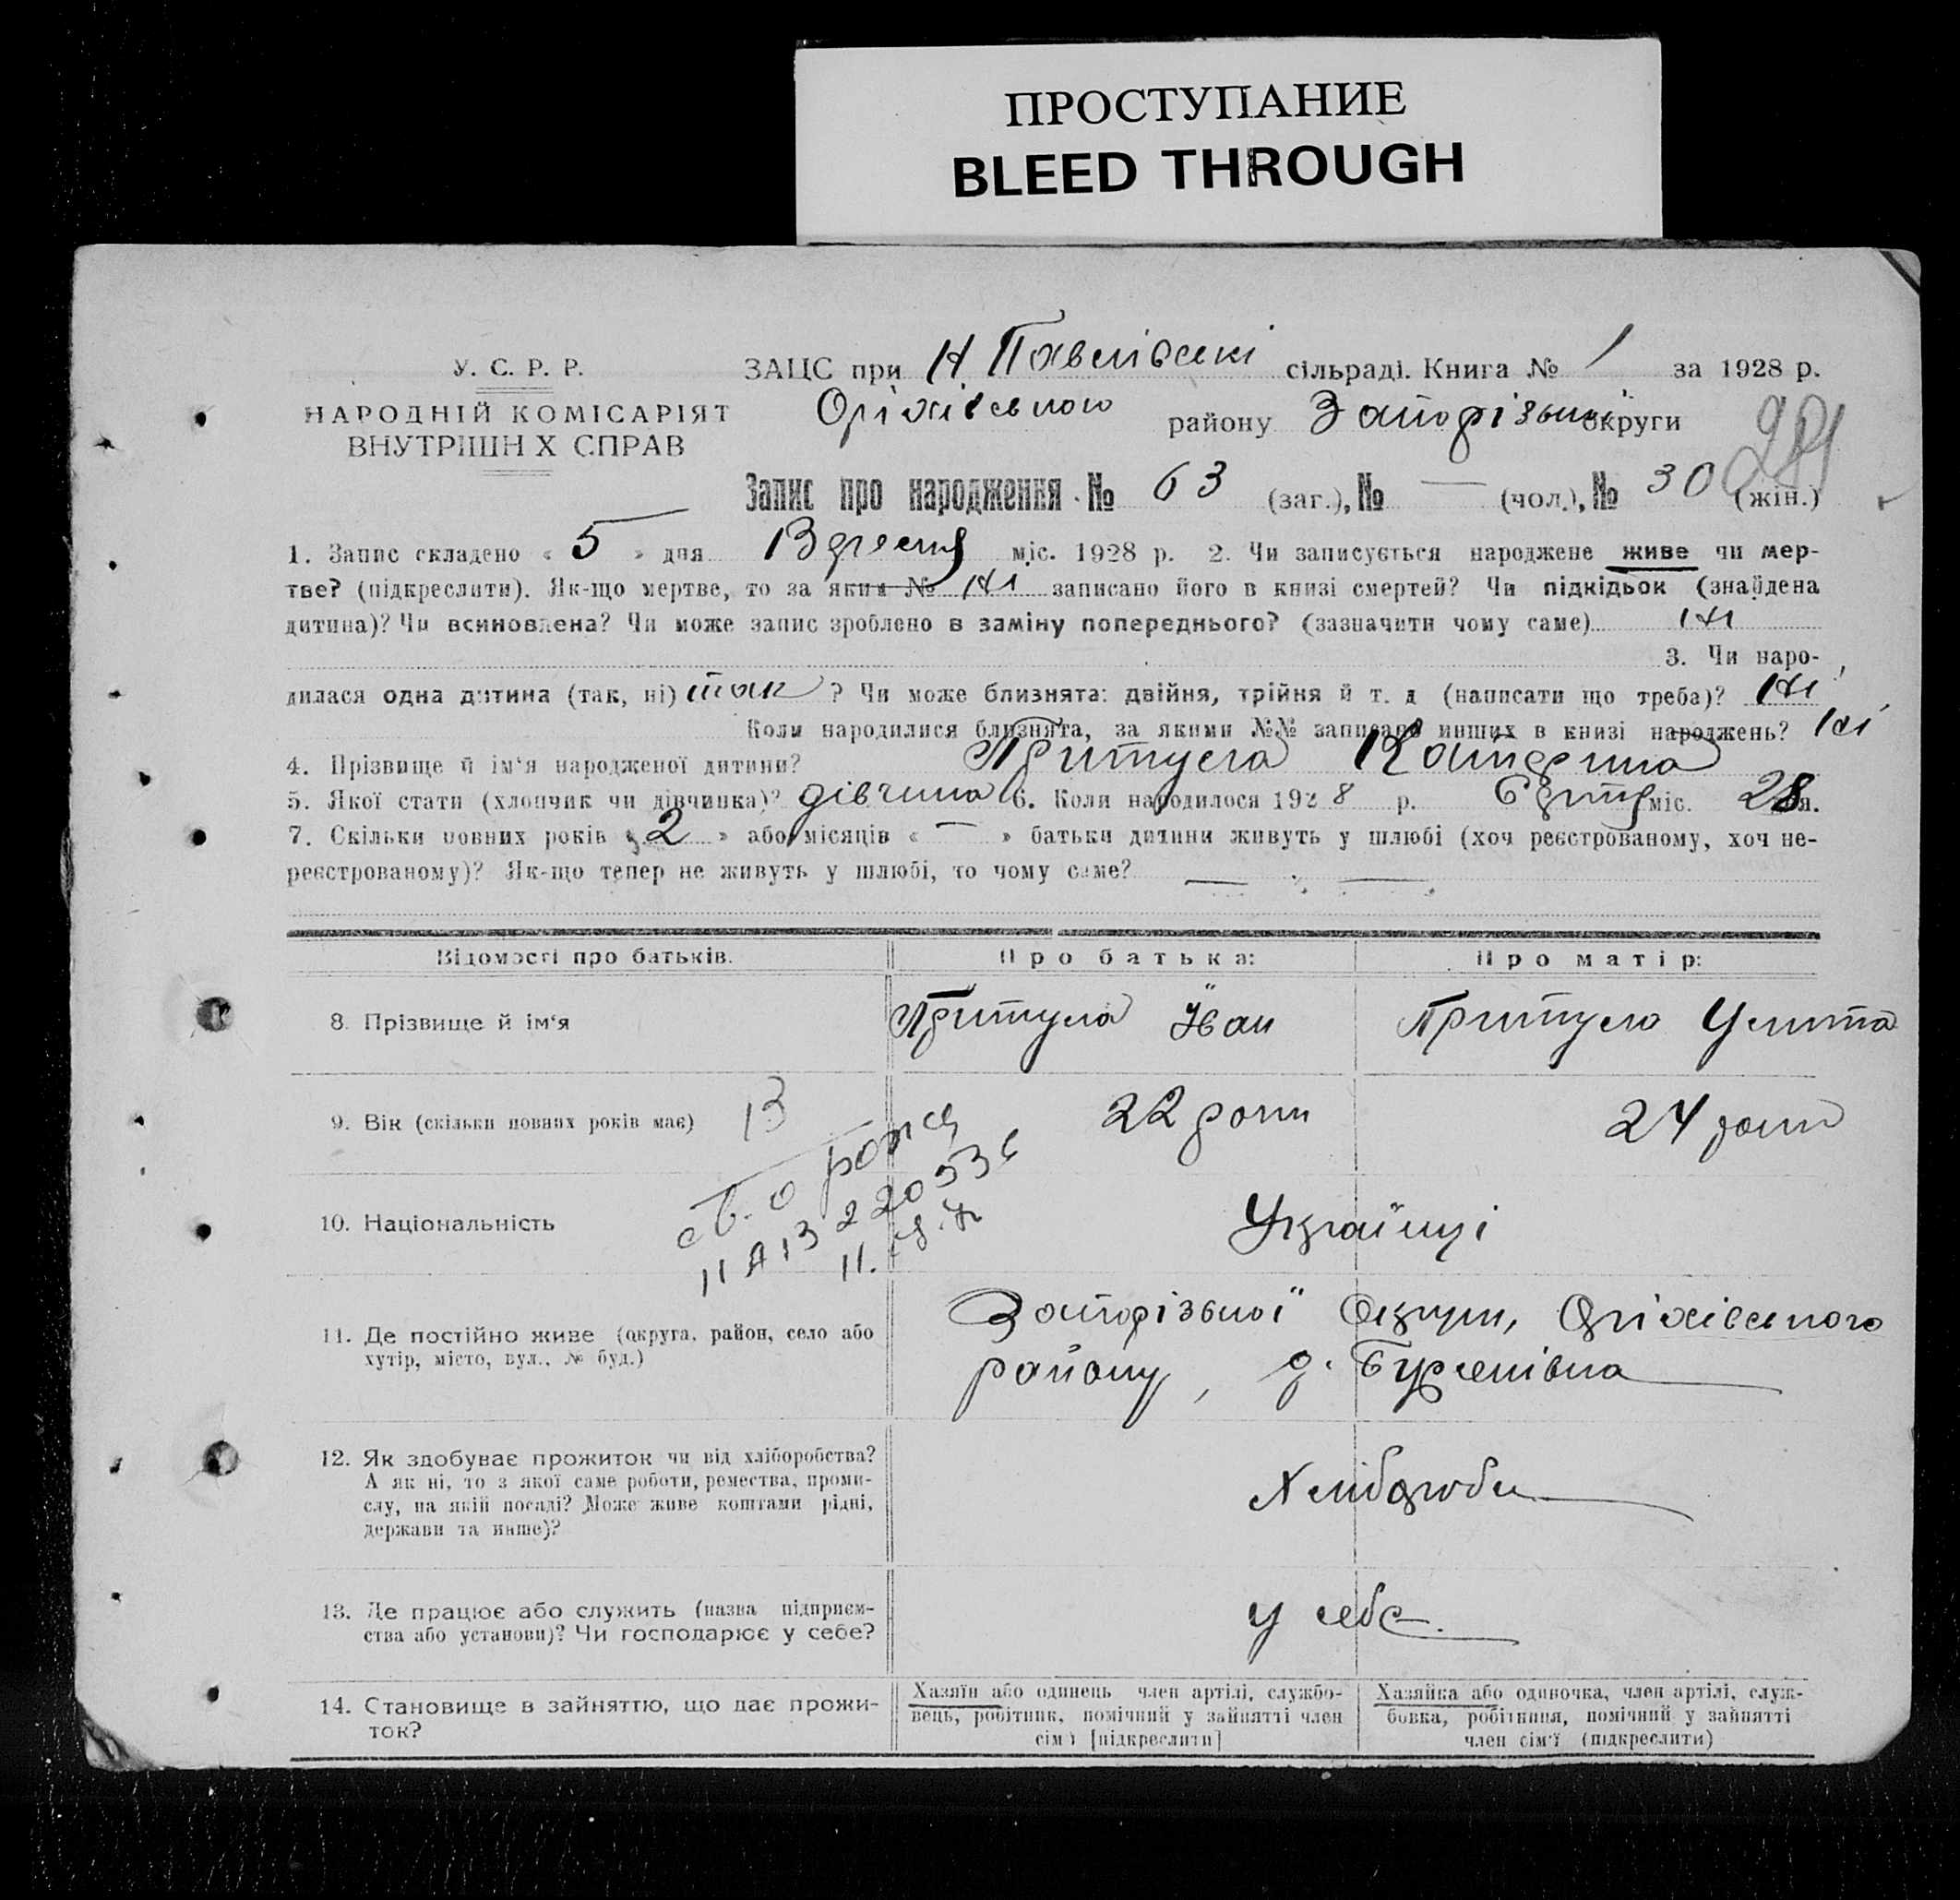 ПРОСТУПАНИЕ
BLEED THROUGH
У. С. Р. Р.
НАРОДНІЙ КОМІСАРІЯТ
ВНУТРІШН Х СПРАВ
ЗАЦС при Н. Павлівскі сільраді. Книга № 1 за 1928 р.
Оріхівського району Запорізької округи
Запис про народження № 63 (заг.), № — (чол.), № 30 (жін.)
1. Запис складено « 5 » дня Вересня міс. 1928 р. 2. Чи записується народжене живе чи мер-
тве? (підкреслити). Як-що мертве, то за яким № Ні записано його в книзі смертей? Чи підкідьок (знайдена
дитина)? Чи всиновлена? Чи може запис зроблено в заміну попереднього? (зазначити чому саме) Ні
3. Чи наро-
дилася одна дитина (так, ні) так ? Чи може близнята: двійня, трійня й т. д (написати що треба)? Ні
Коли народилися близнята, за якими №№ записано инших в книзі народжень? Ні
4. Прізвище й ім‘я народженої дитини? Притула Катерина
5. Якої стати (хлопчик чи дівчинка)? дівчина 6. Коли народилося 192 8 р. міс. 28 дня.
7. Скільки повних років « 2 » або місяців « — » батьки дитини живуть у шлюбі (хоч реєстрованому, хоч не-
реєстрованому)? Як-що тепер не живуть у шлюбі, то чому саме? — —
Відомості про батьків.
Про батька:
Про матір:
8. Прізвище й ім‘я
Притула Іван
Притула Улита
9. Вік (скільки повних років має)
13
22 роки
24 роки
10. Національність
Українці
11. Де постійно живе (округа, район, село або
хутір, місто, вул., № буд.)
Запорізької Округи, Оріхівського
району,
12. Як здобуває прожиток чи від хліборобства?
А як ні, то з якої саме роботи, ремества, проми-
слу, на якій посаді? Може живе коштами рідні,
держави та инше)?
Хлібороби
13. Де працює або служить (назва підприєм-
ства або установи)? Чи господарює у себе?
у себе
14. Становище в зайняттю, що дає прожи-
ток?
Хазяїн або одинець член артілі, службо-
вець, робітник, помічний у зайнятті член
сім'ї [підкреслити]
Хазяйка або одиночка, член артілі, служ-
бовка, робітниця, помічний у зайнятті
член сім'ї (підкреслити)